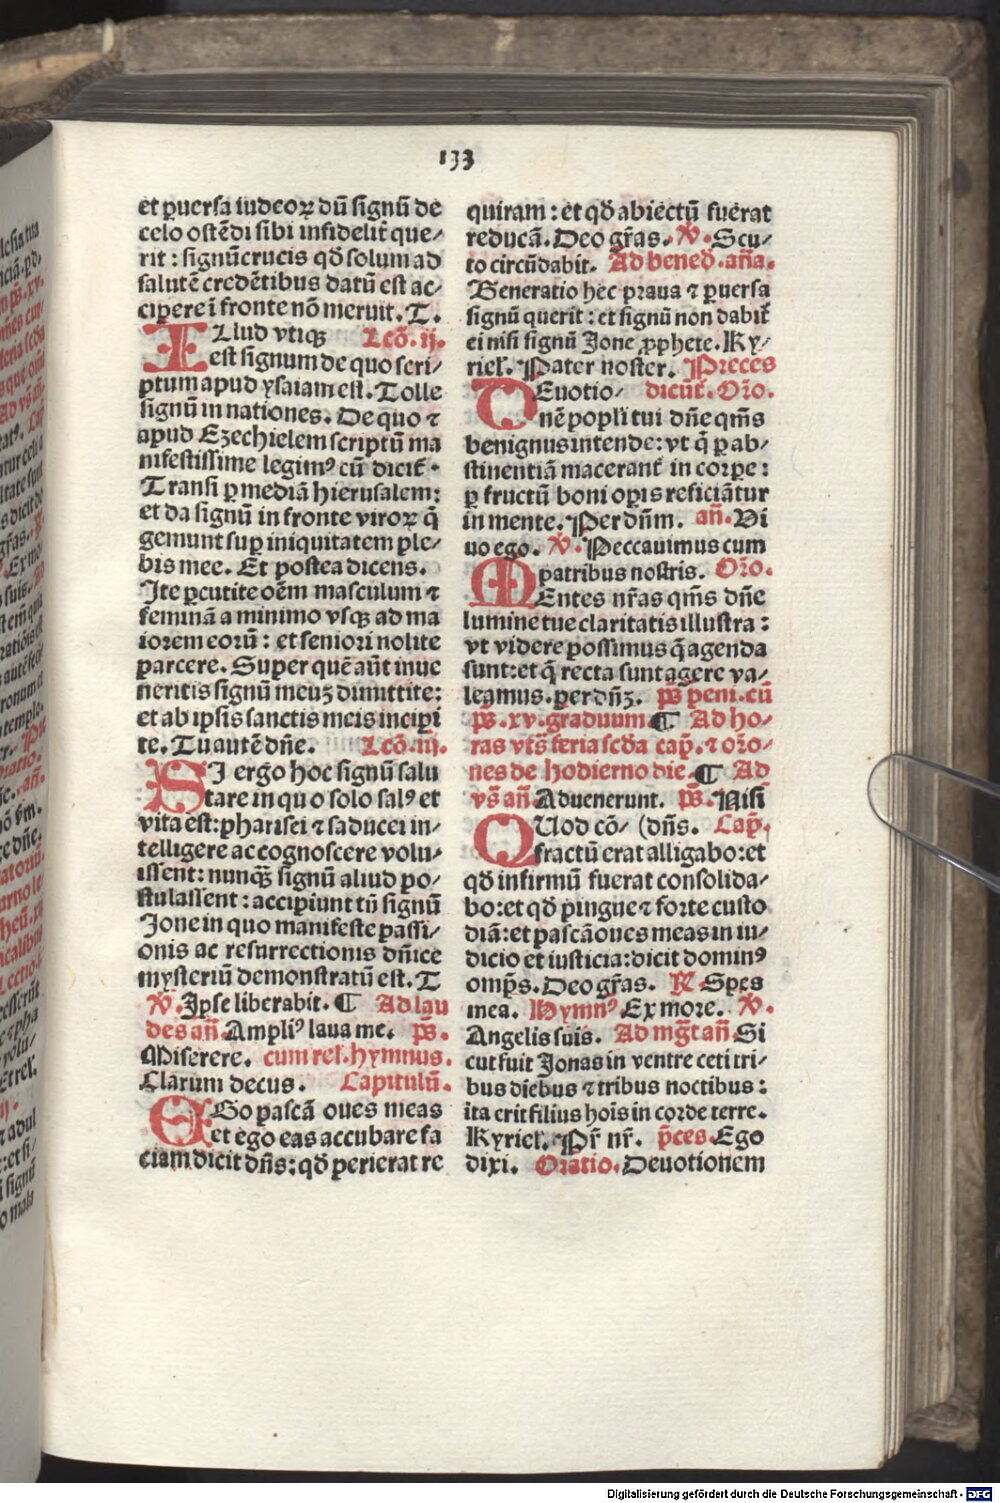 133
et ꝑuersa iudeoꝝ dū signū de
celo ostēdi sibi infidelit̃ que⸗
rit : signū crucis qđ solum ad
salutē credētibus datū est ac⸗
cipere ī fronte nō meruit. T.
ILlud vtiqꝫ Lcō. ij.
est signum de quo scri⸗
ptum apud ysaiam est. Tolle
signū in nationes. De quo ⁊
apud Ezechielem scriptū ma
nifestissime legimꝰ cū dicit̃ .
Transi ꝑ mediā hierusalem:
et da signū in fronte viroꝝ q̄
gemunt suꝑ iniquitatem ple⸗
bis mee. Et postea dicens.
Ite ꝑcutite oēm masculum ⁊
feminā a minimo vsqꝫ ad ma
iorem eorū : et seniori nolite
parcere. Super quē aūt inue
neritis signū meuꝫ dimittite:
et ab ipsis sanctis meis incipi
te. Tu autē dñe. Lcō. iij.
SI ergo hoc signū salu
tare in quo solo salꝰ et
vita est: pharisei ⁊ saducei in⸗
telligere ac cognoscere volu⸗
issent: nunqꝫ signū aliud po⸗
stulassent : accipiunt tñ signū
Jone in quo manifeste passi⸗
onis ac resurrectionis dñice
mysteriū demonstratū est. T
℣. Ipse liberabit. ¶ Ad lau
des añ. Ampliꝰ laua me. p̄s.
Miserere. cum rel. hymnus.
Clarum decus. Capitulū.
EGo pascā oues meas
et ego eas accubare fa
ciam dicit dñs: qđ perierat re
quiram : et qđ abiectū fuerat
reducā. Deo gr̃as. ℣. Scu⸗
to circūdabit. Ad bened. aña.
Generatio hec praua ⁊ ꝑuersa
signū querit : et signū non dabit̃
ei nisi signū Jone ꝓphete. Ky⸗
riel. Pater noster. Preces
DEuotio⸗ dicūt̃. Or̃o.
nē popli tui dñe q̄ms
benignus intende: vt q̄ ꝑ ab⸗
stinentiā macerant̃ in corpe :
ꝑ fructū boni oꝑis reficiātur
in mente. Per dñm. añ. Vi
uo ego. ℣. Peccauimus cum
patribus nostris. Or̃o.
MEntes nr̃as q̄ms dñe
lumine tue claritatis illustra :
vt videre possimus q̄ agenda
sunt: et q̄ recta sunt agere va⸗
leamus. per dñꝫ. p̄s peni. cū
p̄s. xv. graduum ¶ Ad ho⸗
ras vts̄ feria scđa cap̄. ⁊ or̃o⸗
nes de hodierno die. ¶ Ad
vs̄ añ. Aduenerunt. p̄s. Nisi
QUod cō⸗ (dñs. Cap̄.
fractū erat alligabo: et
qđ infirmū fuerat consolida⸗
bo: et qđ pingue ⁊ forte custo
diā: et pascā oues meas in iu⸗
dicio et iusticia: dicit dominꝰ
omp̄s. Deo gr̃as. ℟ Spes
mea. Hymnꝰ Ex more. ℣.
Angelis suis. Ad mg̃t añ Si
cut fuit Jonas in ventre ceti tri⸗
bus diebus ⁊ tribus noctibus :
ita erit filius hoīs in corde terre.
Kyriel. Pr̃ nr̃. p̄ces. Ego
dixi. Oratio. Deuotionem
Digitalisierung gefördert durch die Deutsche Forschungsgemeinschaft - DFG